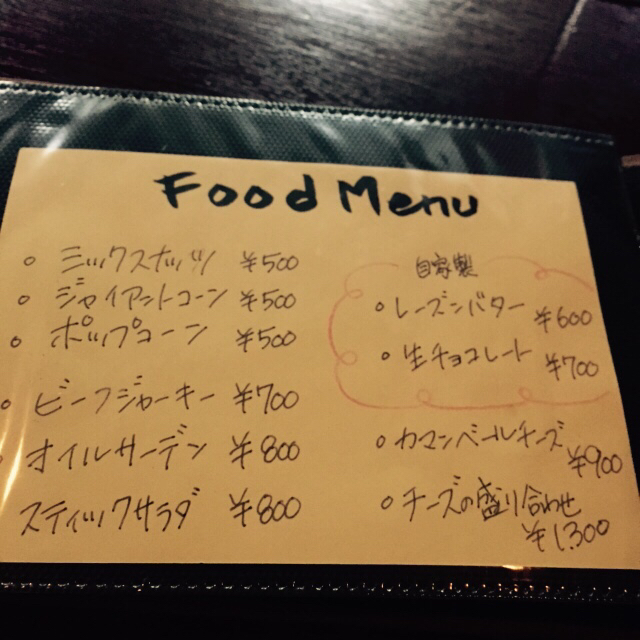 Food Menu
○ ミックスナッツ ¥500
○ ジャイアントコーン ¥500
○ ポップコーン ¥500
○ ビーフジャーキー ¥700
○ オイルサーデン ¥800
スティックサラダ ¥800
自家製
○ レーズンバター ¥600
○ 生チョコレート ¥700
○ カマンベールチーズ
¥900
○ チーズの盛り合わせ
¥1,300